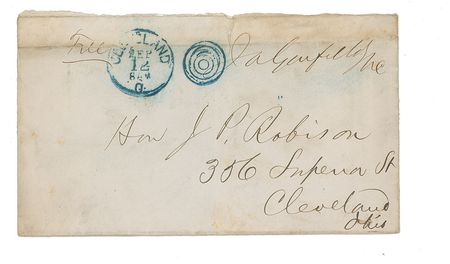 Free
CLEVELAND
SEP
12
8 AM
O.
Ja Garfield Mc
Hon J P. Robison
386 Superior St
Cleveland
Ohio